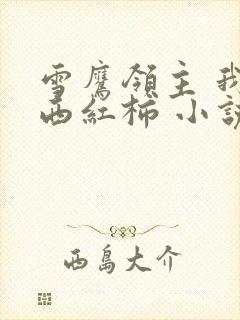 雪鷹領主 我
西紅柿 小說
西島大介